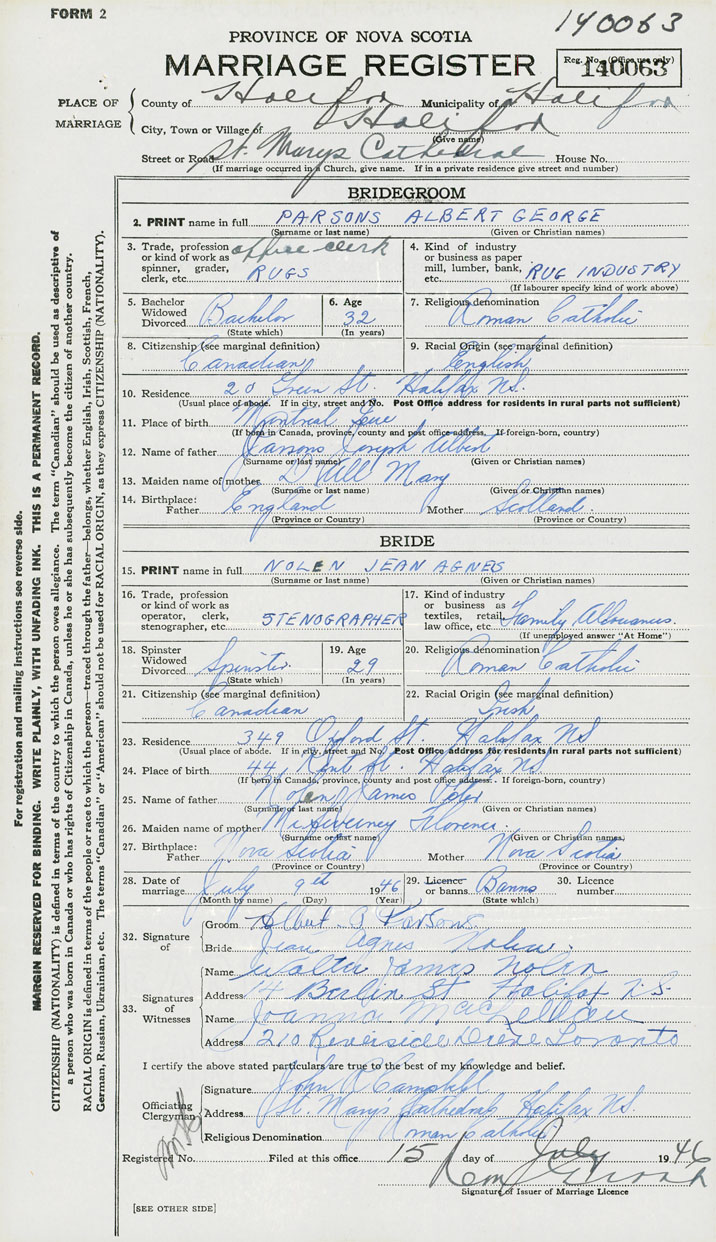 FORM 2
140063
PROVINCE OF NOVA SCOTIA
MARRIAGE REGISTER
Reg. No. (Office use only)
140063
PLACE OF MARRIAGE
County of Halifax Municipality of Halifax
City, Town or Village of Halifax
(Give name)
Street or Road St. Marys Cathedral House No.
(If marriage occurred in a Church, give name. If in a private residence give street and number)
BRIDEGROOM
2. PRINT name in full PARSONS ALBERT GEORGE
(Surname or last name) (Given or Christian names)
3. Trade, profession or kind of work as spinner, grader, clerk, etc. office clerk RUGS
4. Kind of industry or business as paper mill, lumber, bank, etc. RUG INDUSTRY
(If labourer specify kind of work above)
5. Bachelor Widowed Divorced Bachelor
(State which)
6. Age 32
(In years)
7. Religious denomination Roman Catholic
8. Citizenship (see marginal definition) Canadian
9. Racial Origin (see marginal definition) English
10. Residence 20 Green St. Halifax NS.
(Usual place of abode. If in city, street and No. Post Office address for residents in rural parts not sufficient)
11. Place of birth Montreal Que
(If born in Canada, province, county and post office address. If foreign-born, country)
12. Name of father Parsons Joseph Albert
(Surname or last name) (Given or Christian names)
13. Maiden name of mother Mary
(Surname or last name) (Given or Christian names)
14. Birthplace: Father England Mother Scotland.
(Province or Country) (Province or Country)
BRIDE
15. PRINT name in full NOLEN JEAN AGNES
(Surname or last name) (Given or Christian names)
16. Trade, profession or kind of work as operator, clerk, stenographer, etc. STENOGRAPHER
17. Kind of industry or business as textiles, retail, law office, etc. Family Allowances.
(If unemployed answer "At Home")
18. Spinster Widowed Divorced Spinster.
(State which)
19. Age 29
(In years)
20. Religious denomination Roman Catholic
21. Citizenship (see marginal definition) Canadian
22. Racial Origin (see marginal definition) Irish
23. Residence 349 Oxford St. Halifax NS
(Usual place of abode. If in city, street and No. Post Office address for residents in rural parts not sufficient)
24. Place of birth 44 Kent St. Halifax NS
(If born in Canada, province, county and post office address. If foreign-born, country)
25. Name of father Nolen James Peter
(Surname or last name) (Given or Christian names)
26. Maiden name of mother Florence.
(Surname or last name) (Given or Christian names)
27. Birthplace: Father Nova Scotia Mother Nova Scotia
(Province or Country) (Province or Country)
28. Date of marriage July 9th 1946
(Month by name) (Day) (Year)
29. Licence or banns Banns
(State which)
30. Licence number
32. Signature of
Groom Albert G Parsons.
Bride Jean Agnes Nolen.
33. Signatures of Witnesses
Name Walter James Nolen
Address 14 Berlin St Halifax N.S.
Name Joanna MacLellan
Address 210 Riverside Drive Toronto
I certify the above stated particulars are true to the best of my knowledge and belief.
Officiating Clergyman
Signature John R Campbell
Address St. Mary's Cathedral Halifax N.S.
Religious Denomination Roman Catholic
Registered No. Filed at this office 15 day of July 1946
Signature of Issuer of Marriage Licence
[SEE OTHER SIDE]
For registration and mailing instructions see reverse side.
MARGIN RESERVED FOR BINDING. WRITE PLAINLY, WITH UNFADING INK. THIS IS A PERMANENT RECORD.
CITIZENSHIP (NATIONALITY) is defined in terms of the country to which the person owes allegiance. The term "Canadian" should be used as descriptive of
a person who was born in Canada or who has rights of Citizenship in Canada, unless he or she has subsequently become the citizen of another country.
RACIAL ORIGIN is defined in terms of the people or race to which the person—traced through the father—belongs, whether English, Irish, Scottish, French,
German, Russian, Ukrainian, etc. The terms "Canadian" or "American" should not be used for RACIAL ORIGIN, as they express CITIZENSHIP (NATIONALITY).